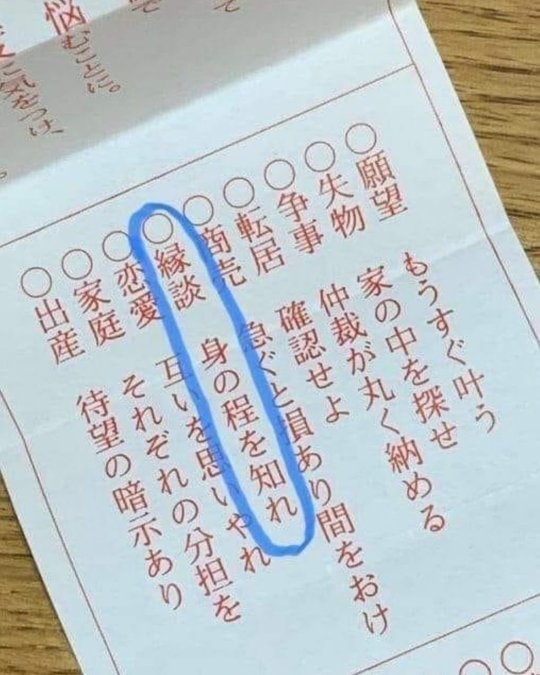 て
で
悩むことに。
と気をつけ、
○願望 もうすぐ叶う
○失物 家の中を探せ
○争事 仲裁が丸く納める
○転居 確認せよ
○商売 急ぐと損あり間をおけ
○縁談 身の程を知れ
○恋愛 互いを思いやれ
○家庭 それぞれの分担を
○出産 待望の暗示あり